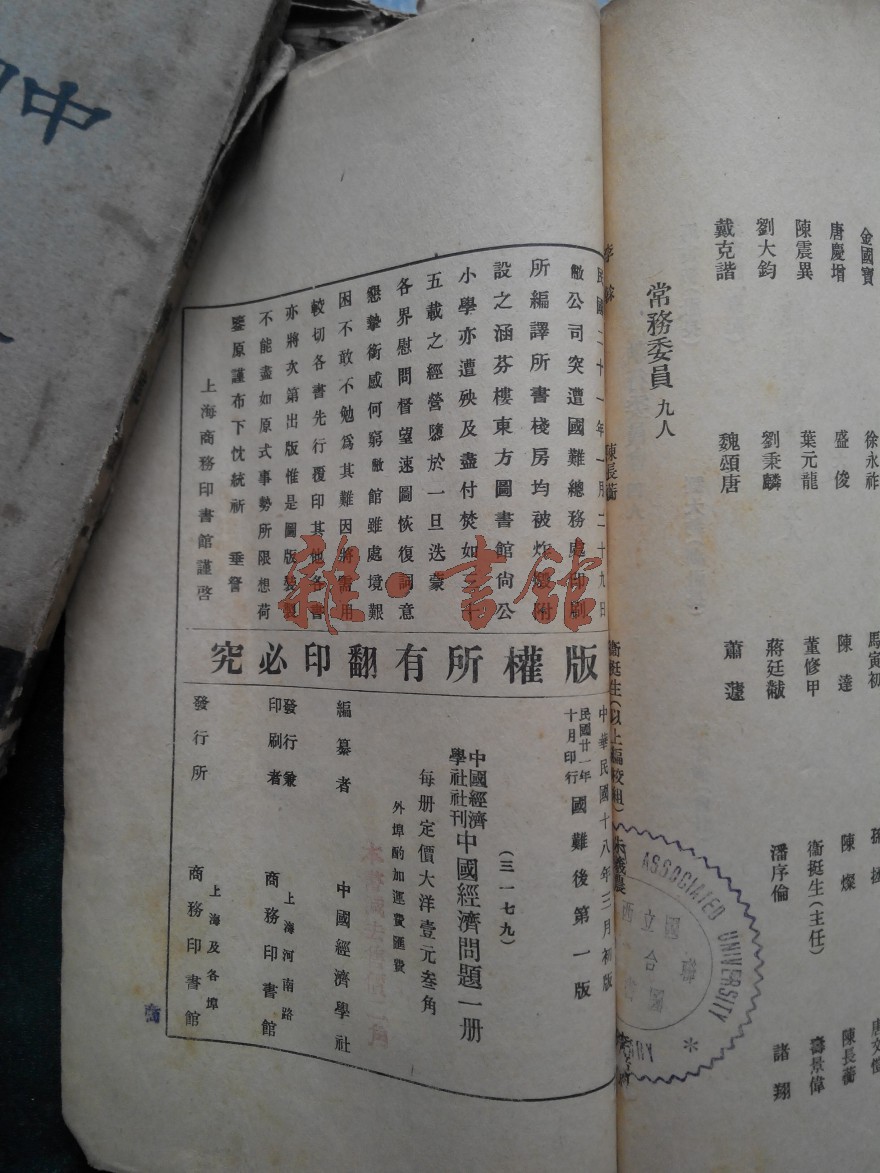 金國寶 徐永祚 馬寅初 孫拯
唐慶增 盛俊 陳達 陳燦 陳長蘅
陳震異 葉元龍 董修甲 衞挺生(主任) 壽景偉
劉大鈞 劉秉麟 蔣廷黻 潘序倫 諸翔
戴克諧 魏頌唐 蕭蘧
常務委員 九人
陳長蘅
衞挺生(以上編校組) 朱義農
ASSOCIATED UNIVERSITY
國立西
民國二十一年一月二十九日
敝公司突遭國難總務處印刷
所編譯所書棧房均被炸燬附
設之涵芬樓東方圖書館尙公
小學亦遭殃及盡付焚如三十
五載之經營隳於一旦迭蒙
各界慰問督望速圖恢復詞意
懇摯銜感何窮敝館雖處境艱
困不敢不勉爲其難因將需用
較切各書先行覆印其他各書
亦將次第出版惟是圖版裝製
不能盡如原式事勢所限想荷
鑒原謹布下忱統祈 垂詧
上海商務印書館謹啓
版權所有翻印必究
中華民國十八年三月初版
民國廿一年十月印行 國難後第一版
(三一七九)
中國經濟學社社刊 中國經濟問題一册
每册定價大洋壹元叁角
外埠酌加運費匯費
編纂者 中國經濟學社
發行兼印刷者 上海河南路 商務印書館
發行所 上海及各埠 商務印書館
雜·書館
中